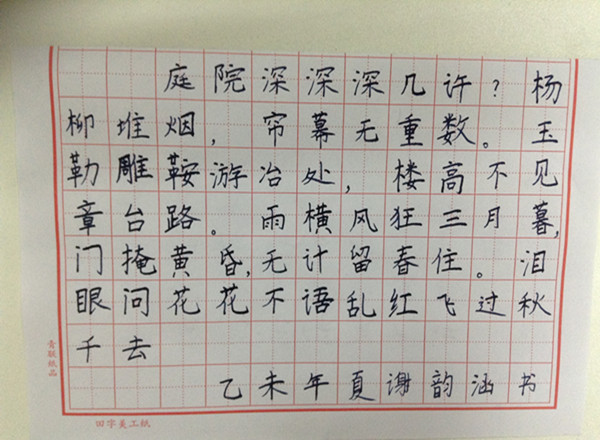 庭院深深深几许?杨
柳堆烟,帘幕无重数。玉
勒雕鞍游冶处,楼高不见
章台路。雨横风狂三月暮,
门掩黄昏,无计留春住。泪
眼问花花不语乱红飞过秋
千去
乙未年夏谢韵涵书
青联纸品
田字美工纸